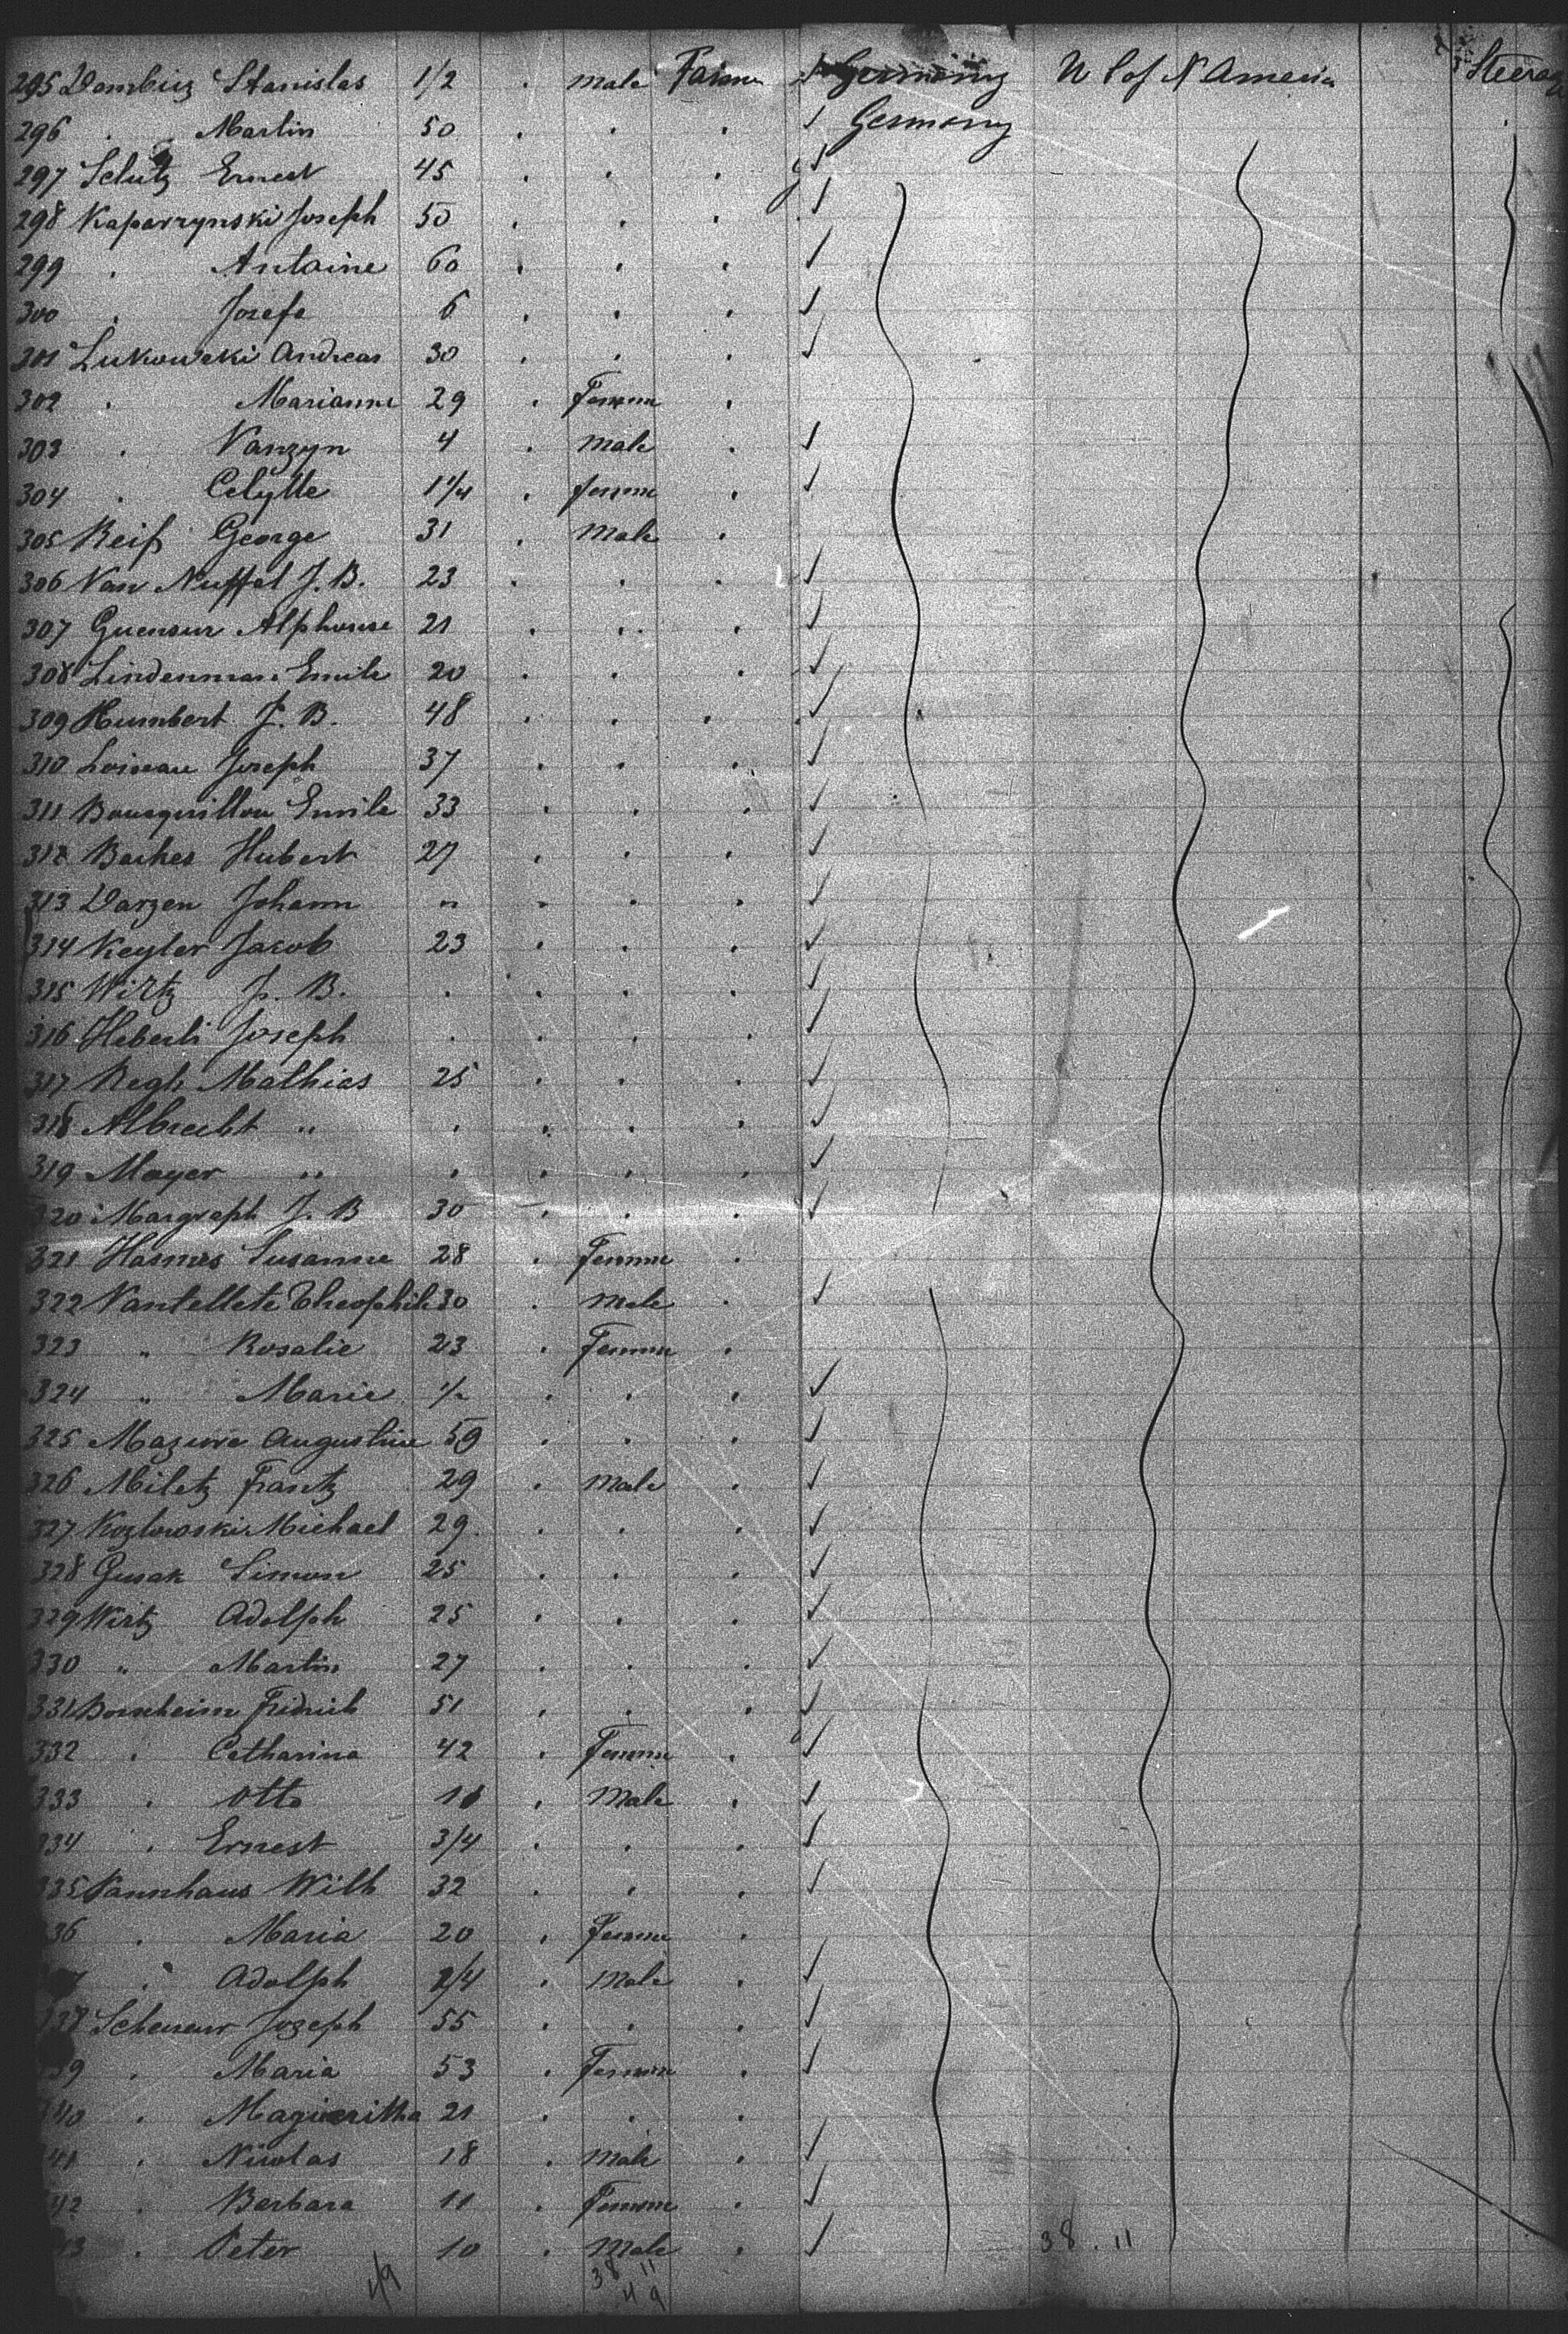 295 Dombiez Stanislas 1/2 . male Farmer Germany U S of N America Steera
296 . Martin 50 . . . Germany .
297 Schutz Ernest 45 . . .
298 Kaparzynski Joseph 50 . . .
299 . Antoine 60 . . .
300 . Josefe 6 . . .
301 Lukowski Andreas 30 . . .
302 . Marianne 29 . Femme .
303 . Vanzyn 4 . male .
304 . Celytte 1 1/4 . femme .
305 Reif George 31 . Male .
306 Van Nuffel J. B. 23 . . .
307 Guensur Alphonse 21 . . .
308 Lindenman Emile 20 . . .
309 Humbert J. B. 48 . . .
310 Loiseau Joseph 37 . . .
311 Bousquillou Emile 33 . . .
312 Backes Hubert 27 . . .
313 Darzen Johann " . . .
314 Keyler Jacob 23 . . .
315 Wirtz J. B. . . . .
316 Heberli Joseph . . . .
317 Regh Mathias 25 . . .
318 Albrecht " . . . .
319 Mayer " . . . .
320 Margraph J. B 30 . . .
321 Hasmes Susanne 28 . Femme .
322 Vantellete Theophile 30 . Male .
323 " Rosalie 23 . Femme .
324 " Marie 1/2 . . .
325 Mazure Augustine 59 . . .
326 Miletz Frantz 29 . Male .
327 Kozlowski Michael 29 . . .
328 Gusak Simon 25 . . .
329 Wirtz Adolph 25 . . .
330 " Martin 27 . . .
331 Bornheim Fridrich 51 . . .
332 . Catharina 42 . Femme .
333 . Otto 16 . Male .
334 . Ernest 3/4 . . .
335 Vannhaus Wilh 32 . . .
36 . Maria 20 . Femme .
7 . Adolph 2/4 . Male .
338 Scheueur Jozeph 55 . . .
39 . Maria 53 . Femme .
40 . Magueritha 21 . . .
41 . Nicolas 18 . Male .
42 . Barbara 11 . Femme .
43 . Peter 10 . Male .
38 . 11
49 38 11
49